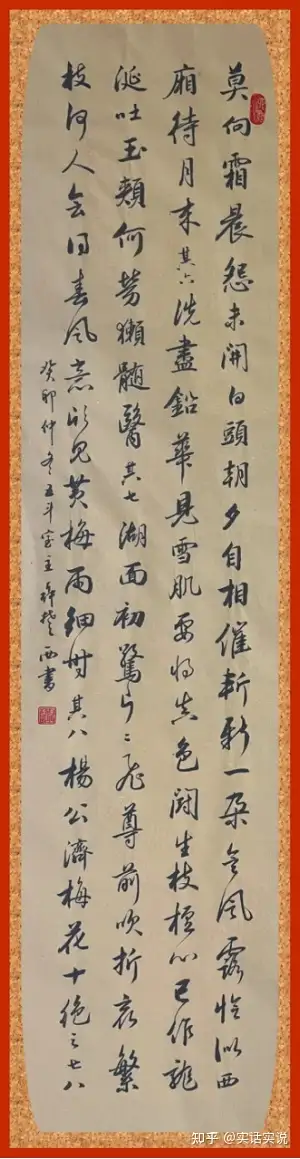 莫向霜晨怨未開白頭朝夕自相催斬新一朵含風露恰似西
廂待月來其六洗盡鉛華見雪肌要將真色鬥生枝檀心已作龍
涎吐玉頰何勞獺髓醫其七湖面初驚片々飛尊前吹折最繁
枝何人會得春風意怕見黃梅雨細時其八楊公濟梅花十絕之七八
癸卯仲冬五斗室主西書
知乎 @实话实说